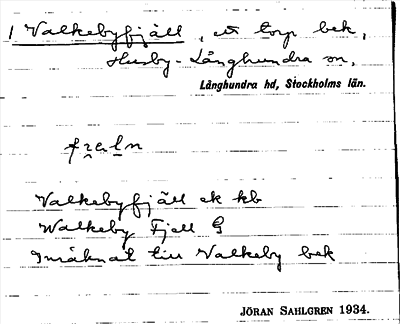 1 Valkebyfjäll, ett torp bek,
Husby-Långhundra sn,
Långhundra hd, Stockholms län.
fræln
Valkebyfjäll ek kb
Walkeby Fjell G
Inräknat till Valkeby bek
JÖRAN SAHLGREN 1934.